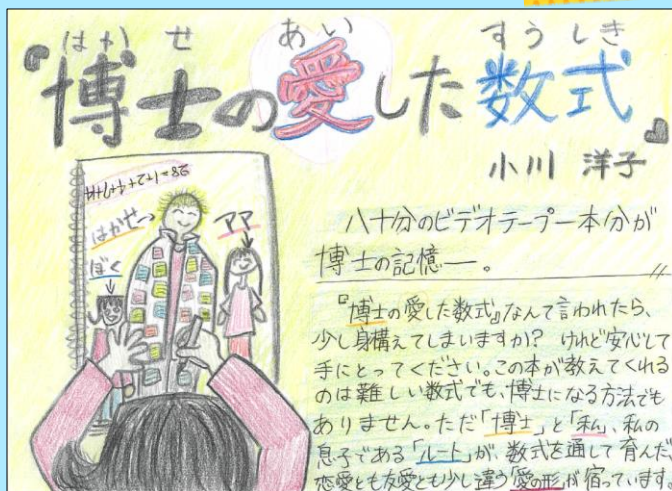 はかせ あい すうしき
『博士の愛した数式』
小川 洋子
28=1+2+4+7+14
はかせ
ママ
ぼく
八十分のビデオテープ一本分が
博士の記憶―。
『博士の愛した数式』なんて言われたら、
少し身構えてしまいますか? けれど安心して
手にとってください。この本が教えてくれる
のは難しい数式でも、博士になる方法でも
ありません。ただ「博士」と「私」、私の
息子である「ルート」が、数式を通して育んだ、
恋愛とも友愛とも少し違う「愛の形」が宿っています。